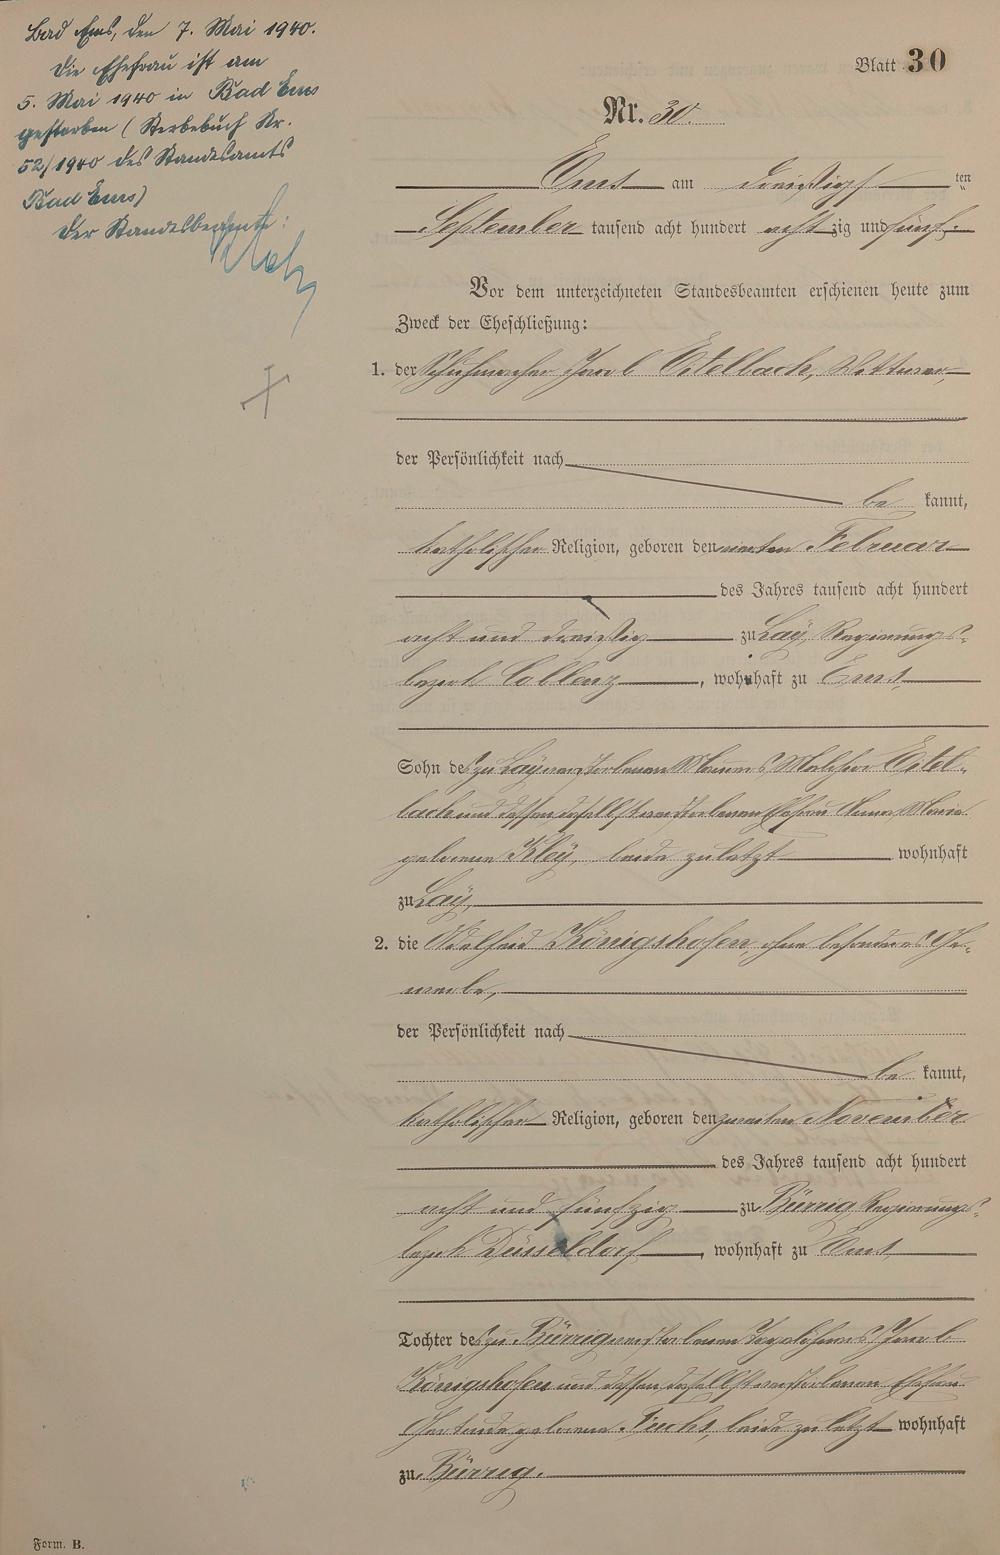 Bad Ems, den 7. Mai 1940.
Die Ehefrau ist am
5. Mai 1940 in Bad Ems
gestorben (Sterbebuch Nr.
52/1940 des Standesamts
Bad Ems)
Der Standesbeamte:
Blatt 30
Nr. 30.
Ems am dreißigsten
September tausend acht hundert achtzig und fünf.
Vor dem unterzeichneten Standesbeamten erschienen heute zum
Zweck der Eheschließung:
1. der Schuhmacher Jacob Eitelbach, Wittwer,
der Persönlichkeit nach
bekannt,
katholischer Religion, geboren den vierten Februar
des Jahres tausend acht hundert
acht und dreißig zu Lay, Regierungs-
bezirk Coblenz, wohnhaft zu Ems,
Sohn des zu Lay verstorbenen Melchior Eitel-
bach und dessen daselbst verstorbenen Ehefrau Anna Maria
geborene Kley, beide zuletzt wohnhaft
zu Lay,
2. die Adelheid Königshofen, ohne besonderes Ge-
werbe,
der Persönlichkeit nach
bekannt,
katholischer Religion, geboren den zweiten November
des Jahres tausend acht hundert
acht und fünfzig zu Bürrig Regierungs-
bezirk Düsseldorf, wohnhaft zu Ems,
Tochter des zu Bürrig verstorbenen Tagelöhners Jacob
Königshofen und dessen daselbst verstorbenen Ehefrau
Gertrude geborene Fuchs, beide zuletzt wohnhaft
zu Bürrig.
Form. B.